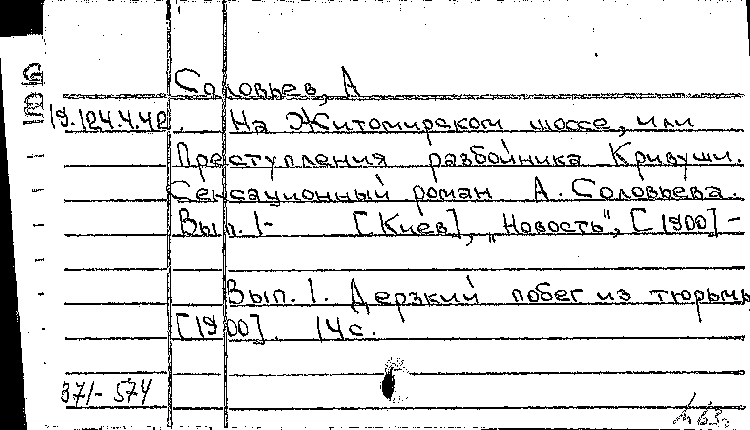 Соловьев, А
19.124.4.42. На Житомирском шоссе, или
Преступления разбойника Кривуши.
Сенсационный роман А. Соловьева.
Вып. 1- [Киев], „Новость", [1900]-
Вып. 1. Дерзкий побег из тюрьмы
[1900]. 14с.
371-574